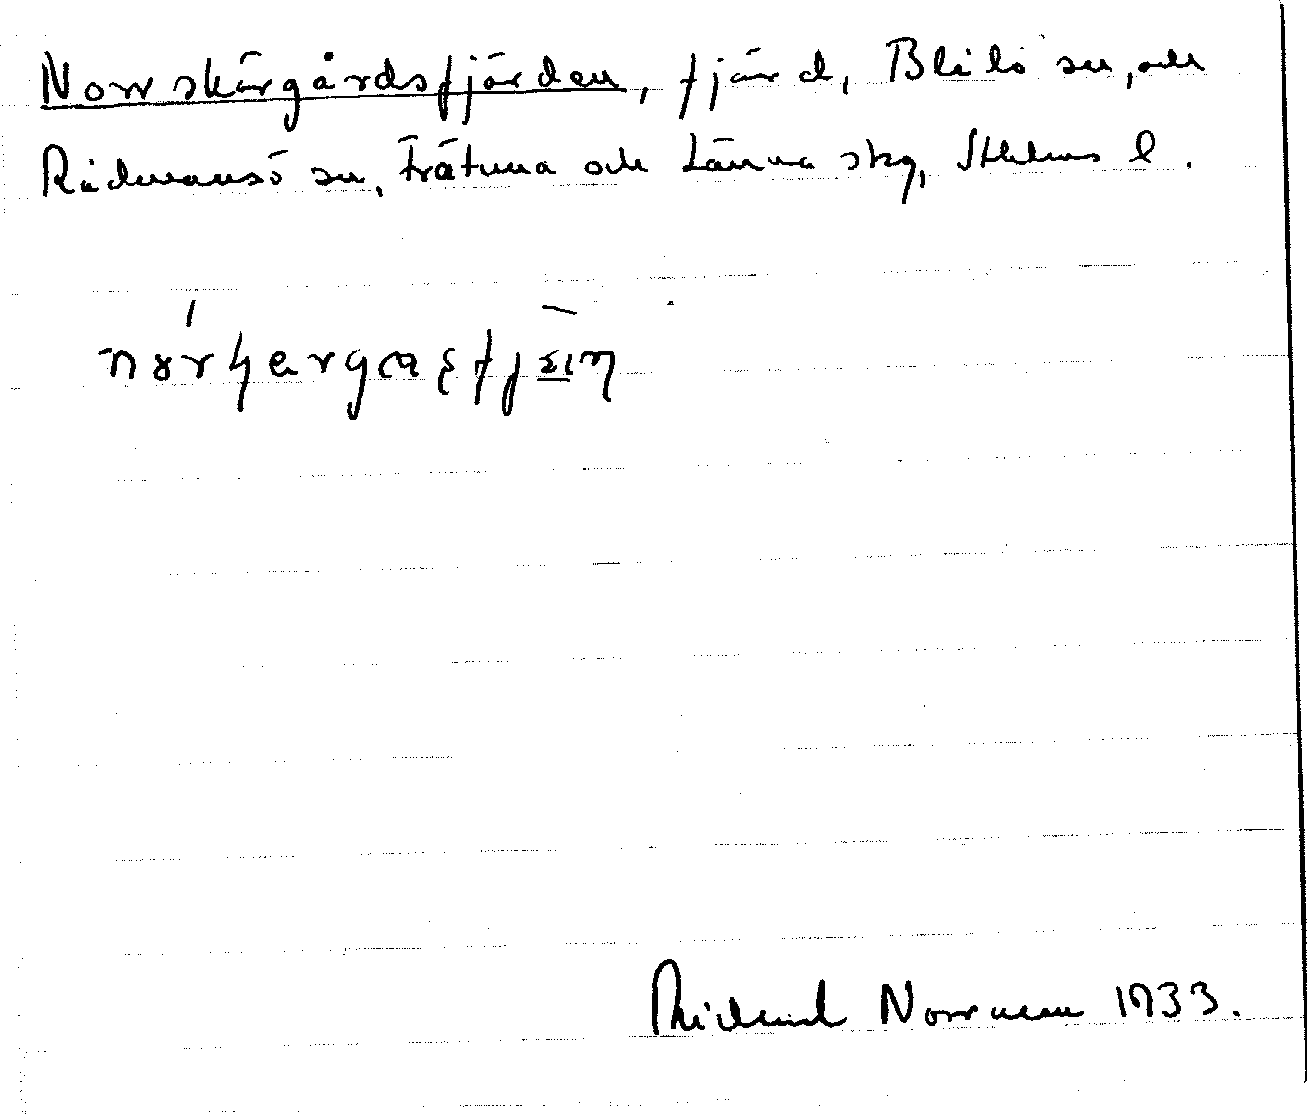 Norrskärgårdsfjärden, fjärd, Blidö sn, och
Rådmansö sn, Frötuna och Länna skg, Sthlms l.
Rickard Norrman 1933.